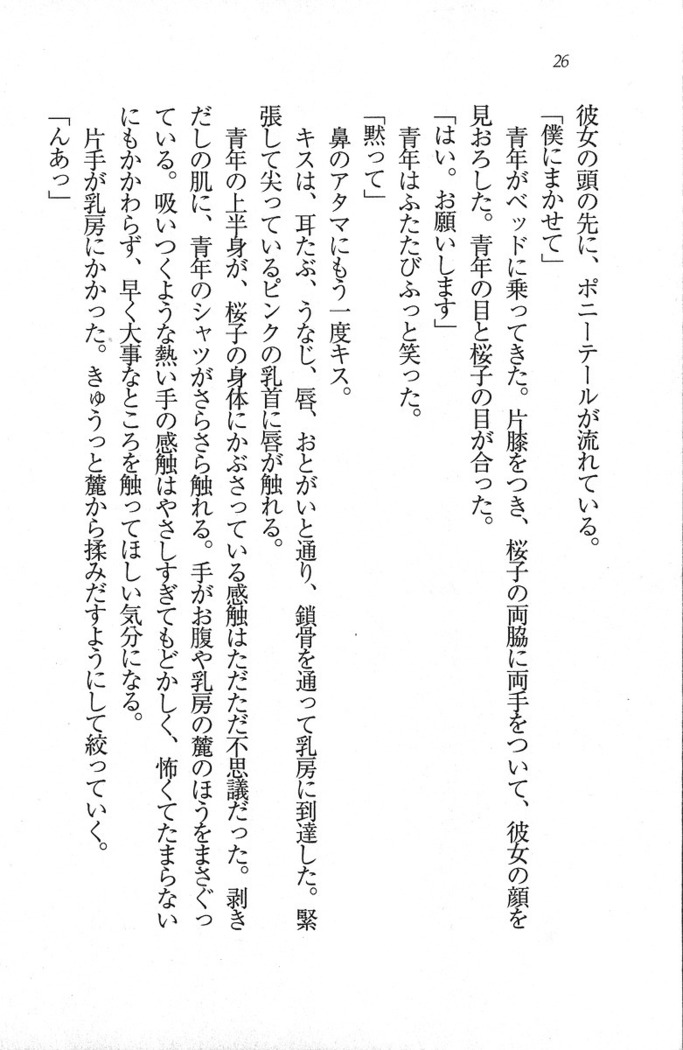 26
彼女の頭の先に、ポニーテールが流れている。
「僕にまかせて」
青年がベッドに乗ってきた。片膝をつき、桜子の両脇に両手をついて、彼女の顔を
見おろした。青年の目と桜子の目が合った。
「はい。お願いします」
青年はふたたびふっと笑った。
「黙って」
鼻のアタマにもう一度キス。
キスは、耳たぶ、うなじ、唇、おとがいと通り、鎖骨を通って乳房に到達した。緊
張して尖っているピンクの乳首に唇が触れる。
青年の上半身が、桜子の身体にかぶさっている感触はただただ不思議だった。剥き
だしの肌に、青年のシャツがさらさら触れる。手がお腹や乳房の麓のほうをまさぐっ
ている。吸いつくような熱い手の感触はやさしすぎてもどかしく、怖くてたまらない
にもかかわらず、早く大事なところを触ってほしい気分になる。
片手が乳房にかかった。きゅうっと麓から揉みだすようにして絞っていく。
「んあっ」